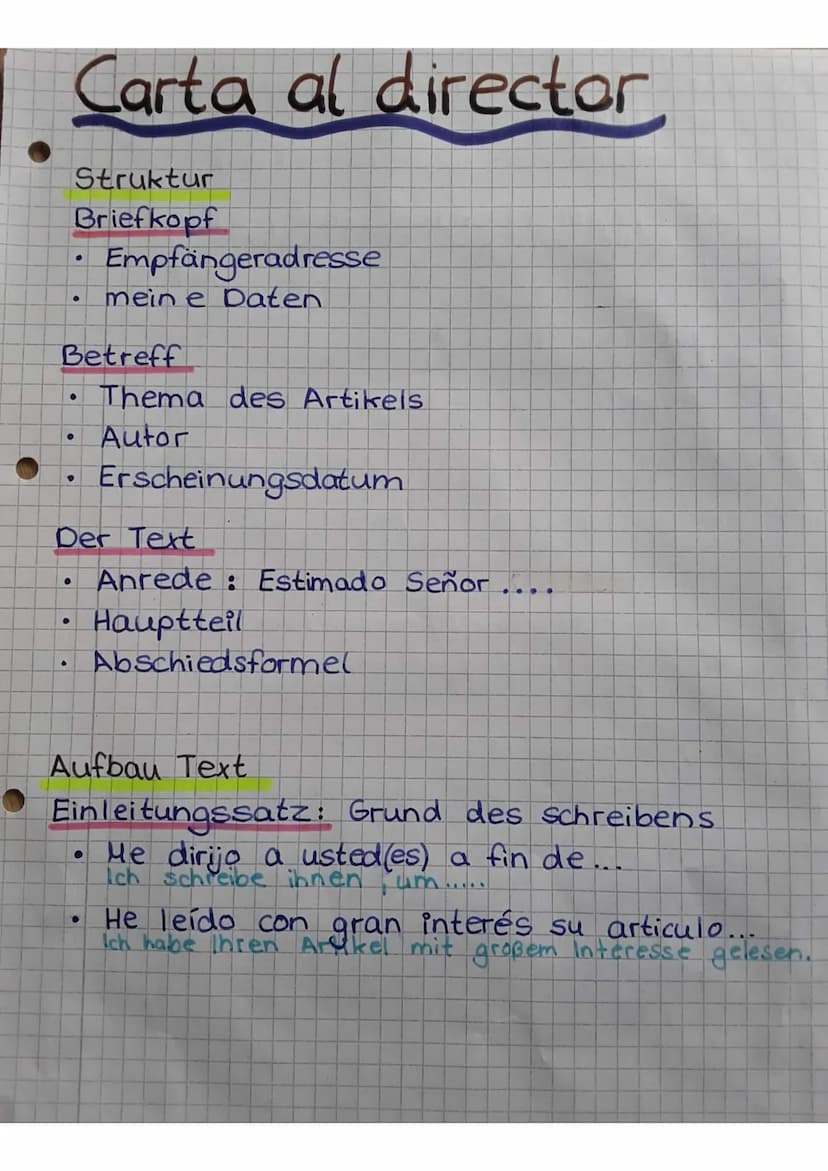 Carta al director
Struktur
Briefkopf
• Empfängeradresse
• meine Daten
Betreff
• Thema des Artikels
• Autor
• Erscheinungsdatum
Der Text
• Anrede : Estimado Señor ....
• Hauptteil
• Abschiedsformel
Aufbau Text
Einleitungssatz: Grund des schreibens
• Me dirijo a usted(es) a fin de...
Ich schreibe ihnen , um.....
• He leído con gran interés su articulo...
Ich habe Ihren Artikel mit großem Interesse gelesen.